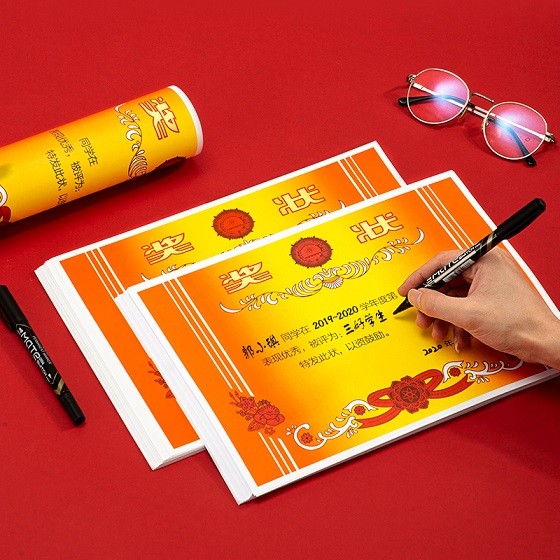 奖
同学在
现优秀，被评为：
特发此状，以
奖 状
奖 状
郭小强 同学在 2019-2020 学年度第
表现优秀，被评为：三好学生
特发此状，以资鼓励。
2020 年